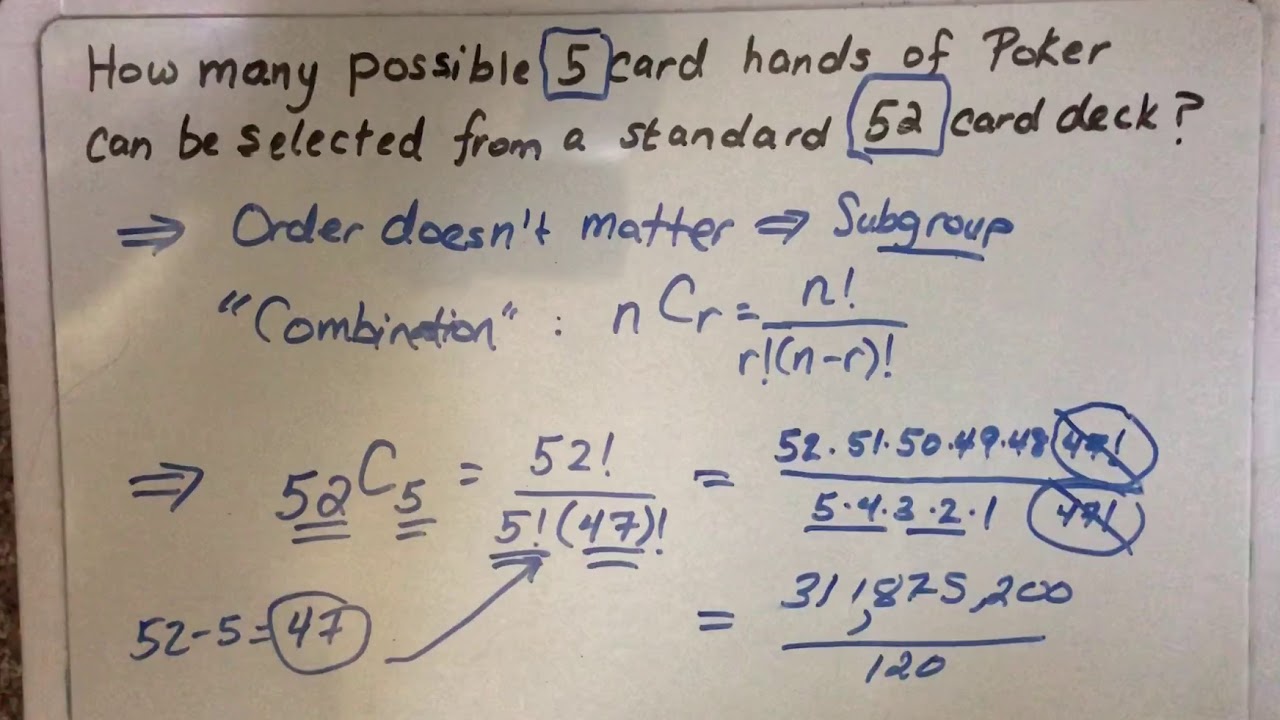 How many possible 5 card hands of Poker
can be selected from a standard 52 card deck?
⇒ Order doesn't matter ⇒ Subgroup
"Combination" : nCr = n! / r!(n-r)!
⇒ 52C5 = 52! / 5!(47)! = 52·51·50·49·48 47! / 5·4·3·2·1 47!
52-5=47
= 311,875,200 / 120